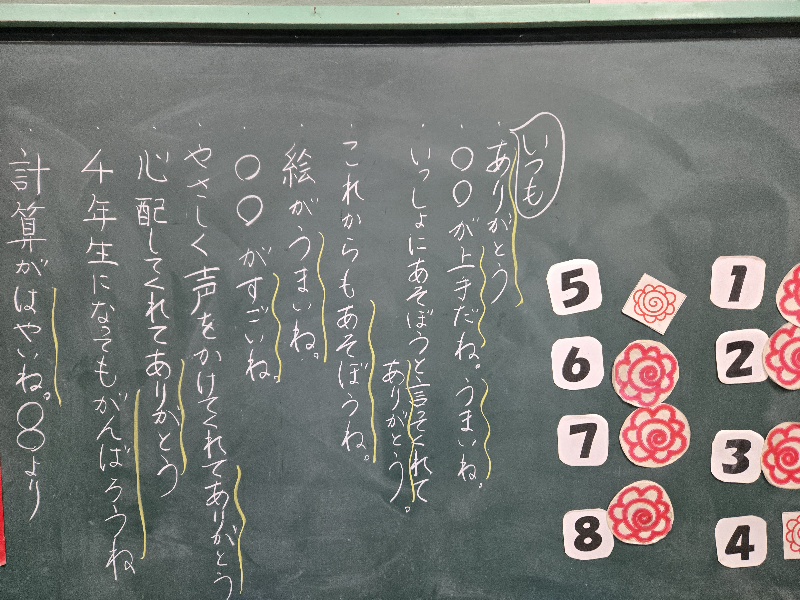 いつも
ありがとう
○○が上手だね。うまいね。
いっしょにあそぼうと言ってくれて
ありがとう。
これからもあそぼうね。
絵がうまいね。
○○がすごいね。
やさしく声をかけてくれてありがとう
心配してくれてありがとう
4年生になってもがんばろうね
計算がはやいね。○○より
1
2
3
4
5
6
7
8